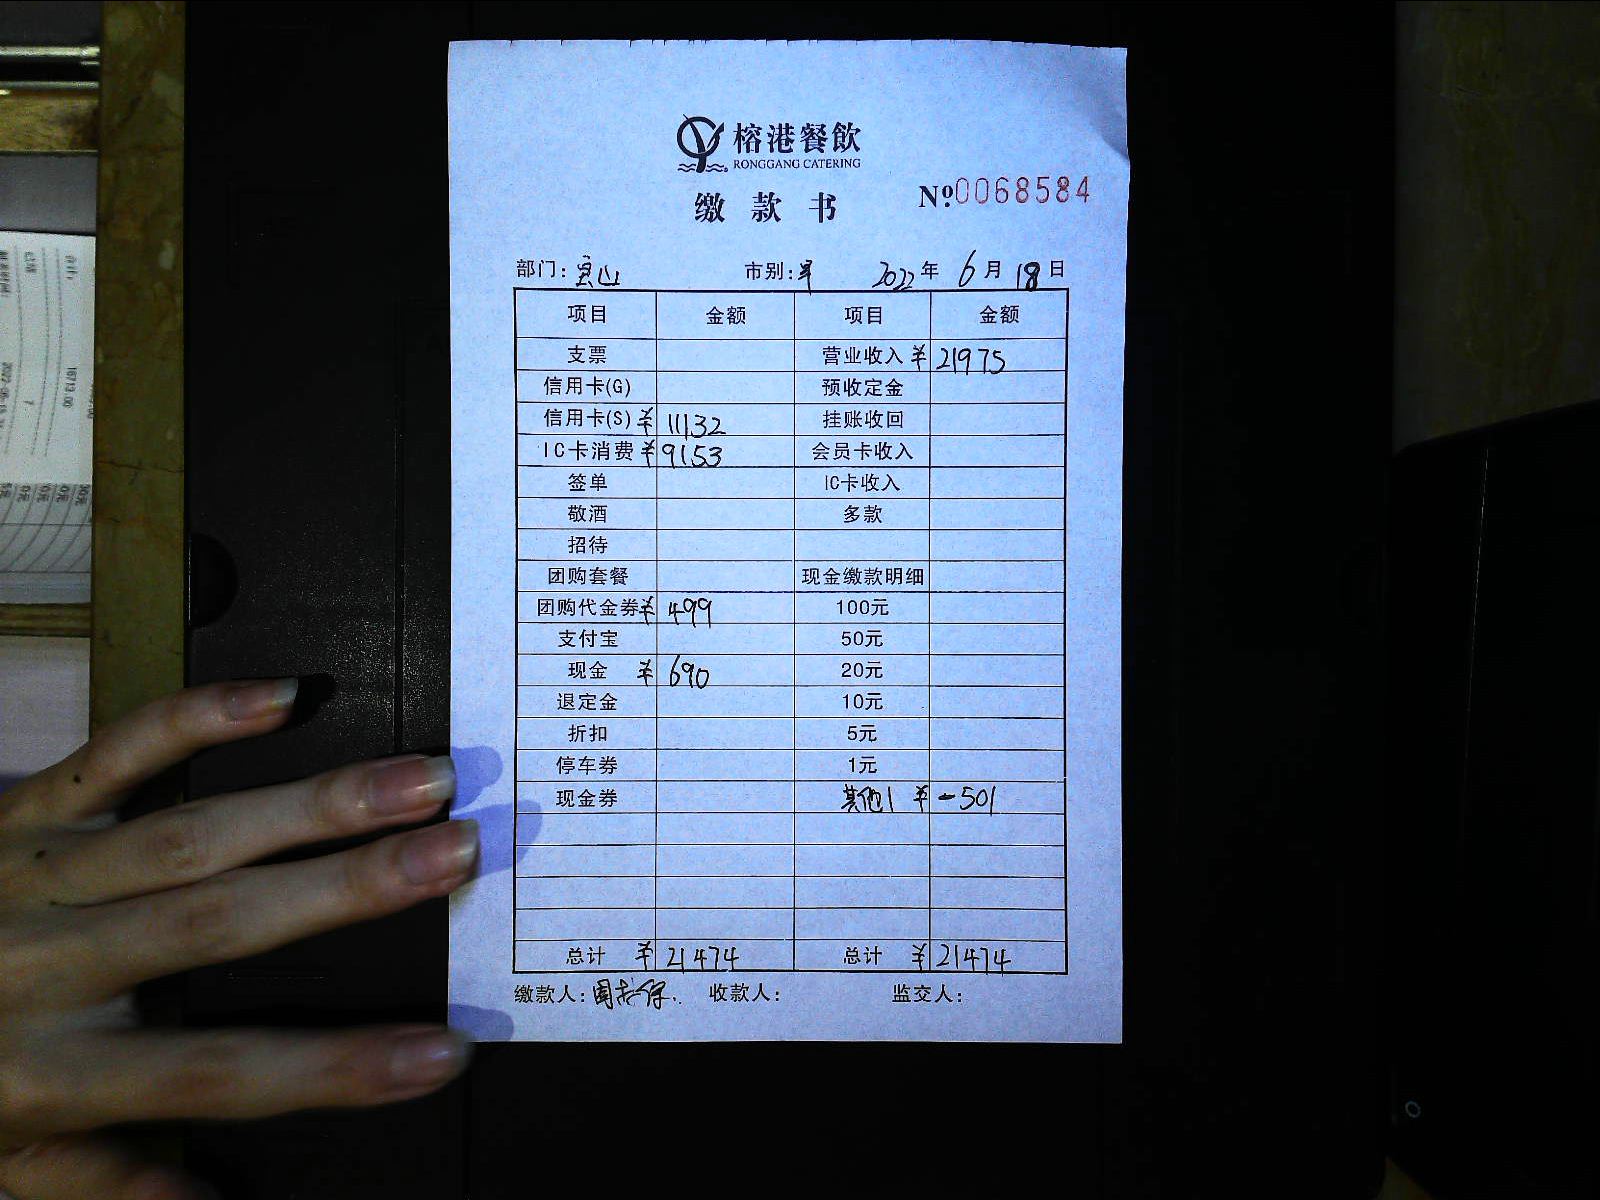 榕港餐飲
RONGGANG CATERING
缴款书
Nº.0068584
部门: 宝山 市别: 早 2022年 6月 18日
项目 金额 项目 金额
支票 营业收入 ¥21975
信用卡(G) 预收定金
信用卡(S) ¥11132 挂账收回
IC卡消费 ¥9153 会员卡收入
签单 IC卡收入
敬酒 多款
招待
团购套餐 现金缴款明细
团购代金券 ¥499 100元
支付宝 50元
现金 ¥690 20元
退定金 10元
折扣 5元
停车券 1元
现金券 其他1 ¥-501
总计 ¥21474 总计 ¥21474
缴款人: 收款人: 监交人:
16713.00